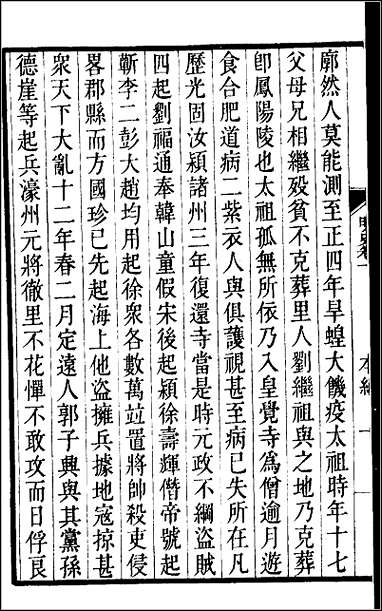 明史卷一 本紀 一
廓然人莫能測至正四年旱蝗大饑疫太祖時年十七
父母兄相繼殁貧不克葬里人劉繼祖與之地乃克葬
卽鳳陽陵也太祖孤無所依乃入皇覺寺爲僧逾月遊
食合肥道病二紫衣人與俱護視甚至病已失所在凡
歷光固汝潁諸州三年復還寺當是時元政不綱盜賊
四起劉福通奉韓山童假宋後起潁徐壽輝僭帝號起
蘄李二彭大趙均用起徐衆各數萬竝置將帥殺吏侵
畧郡縣而方國珍已先起海上他盜擁兵據地寇掠甚
衆天下大亂十二年春二月定遠人郭子興與其黨孫
德崖等起兵濠州元將徹里不花憚不敢攻而日俘良